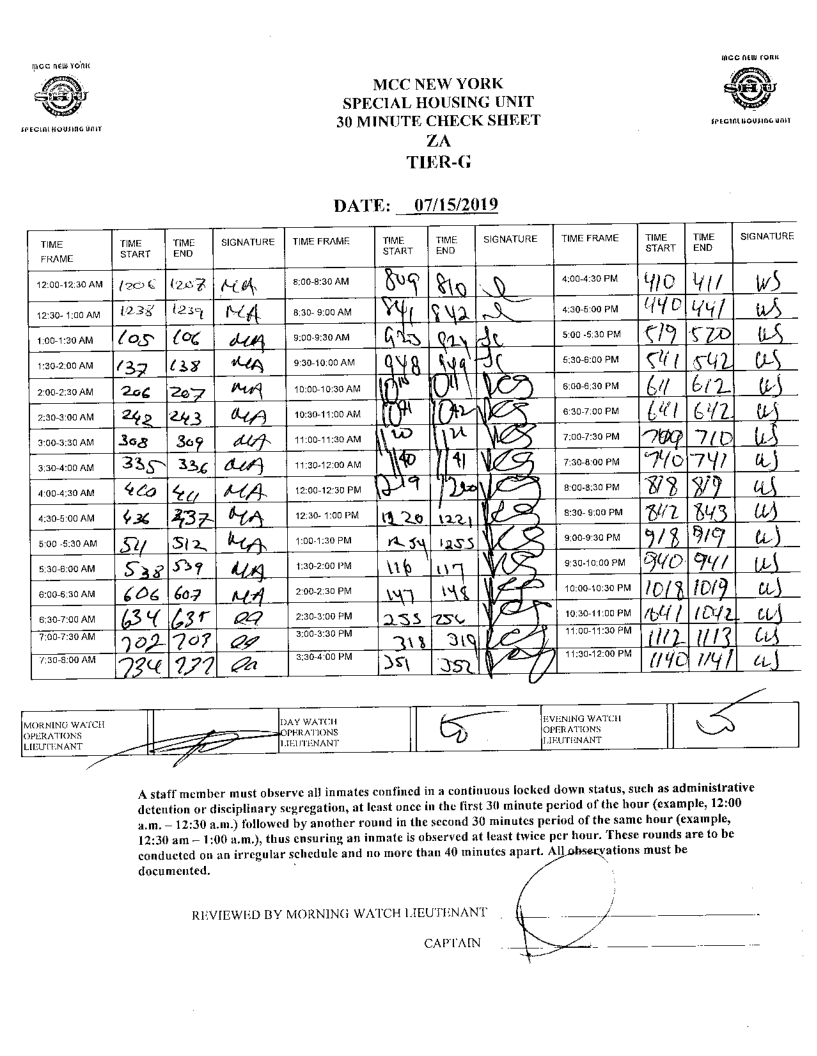 MCC NEW YORK
SHU
SPECIAL HOUSING UNIT
MCC NEW YORK
SHU
SPECIAL HOUSING UNIT
MCC NEW YORK
SPECIAL HOUSING UNIT
30 MINUTE CHECK SHEET
ZA
TIER-G
DATE: 07/15/2019
TIME FRAME TIME START TIME END SIGNATURE TIME FRAME TIME START TIME END SIGNATURE TIME FRAME TIME START TIME END SIGNATURE
12:00-12:30 AM 1206 1207 MA 8:00-8:30 AM 809 810 4:00-4:30 PM 410 411 WS
12:30- 1:00 AM 1238 1239 MA 8:30- 9:00 AM 841 842 4:30-5:00 PM 440 441 WS
1:00-1:30 AM 105 106 MA 9:00-9:30 AM 923 924 5:00 -5:30 PM 519 520 WS
1:30-2:00 AM 137 138 MA 9:30-10:00 AM 948 949 5:30-6:00 PM 541 542 WS
2:00-2:30 AM 206 207 MA 10:00-10:30 AM 6:00-6:30 PM 611 612 WS
2:30-3:00 AM 242 243 MA 10:30-11:00 AM 1041 1042 6:30-7:00 PM 641 642 WS
3:00-3:30 AM 308 309 MA 11:00-11:30 AM 1120 1121 7:00-7:30 PM 709 710 WS
3:30-4:00 AM 335 336 MA 11:30-12:00 AM 1140 1141 7:30-8:00 PM 740 741 WS
4:00-4:30 AM 411 MA 12:00-12:30 PM 8:00-8:30 PM 818 819 WS
4:30-5:00 AM 436 437 MA 12:30- 1:00 PM 1220 1221 8:30- 9:00 PM 842 843 WS
5:00 -5:30 AM 511 512 MA 1:00-1:30 PM 1254 1255 9:00-9:30 PM 918 919 WS
5:30-6:00 AM 538 539 MA 1:30-2:00 PM 116 117 9:30-10:00 PM 940 941 WS
6:00-6:30 AM 606 607 MA 2:00-2:30 PM 147 148 10:00-10:30 PM 1018 1019 WS
6:30-7:00 AM 634 635 2:30-3:00 PM 255 256 10:30-11:00 PM 1041 1042 WS
7:00-7:30 AM 702 703 3:00-3:30 PM 318 319 11:00-11:30 PM 1112 1113 WS
7:30-8:00 AM 734 3:30-4:00 PM 351 352 11:30-12:00 PM 1140 1141 WS
MORNING WATCH OPERATIONS LIEUTENANT DAY WATCH OPERATIONS LIEUTENANT EVENING WATCH OPERATIONS LIEUTENANT
A staff member must observe all inmates confined in a continuous locked down status, such as administrative
detention or disciplinary segregation, at least once in the first 30 minute period of the hour (example, 12:00
a.m. – 12:30 a.m.) followed by another round in the second 30 minutes period of the same hour (example,
12:30 am – 1:00 a.m.), thus ensuring an inmate is observed at least twice per hour. These rounds are to be
conducted on an irregular schedule and no more than 40 minutes apart. All observations must be
documented.
REVIEWED BY MORNING WATCH LIEUTENANT
CAPTAIN